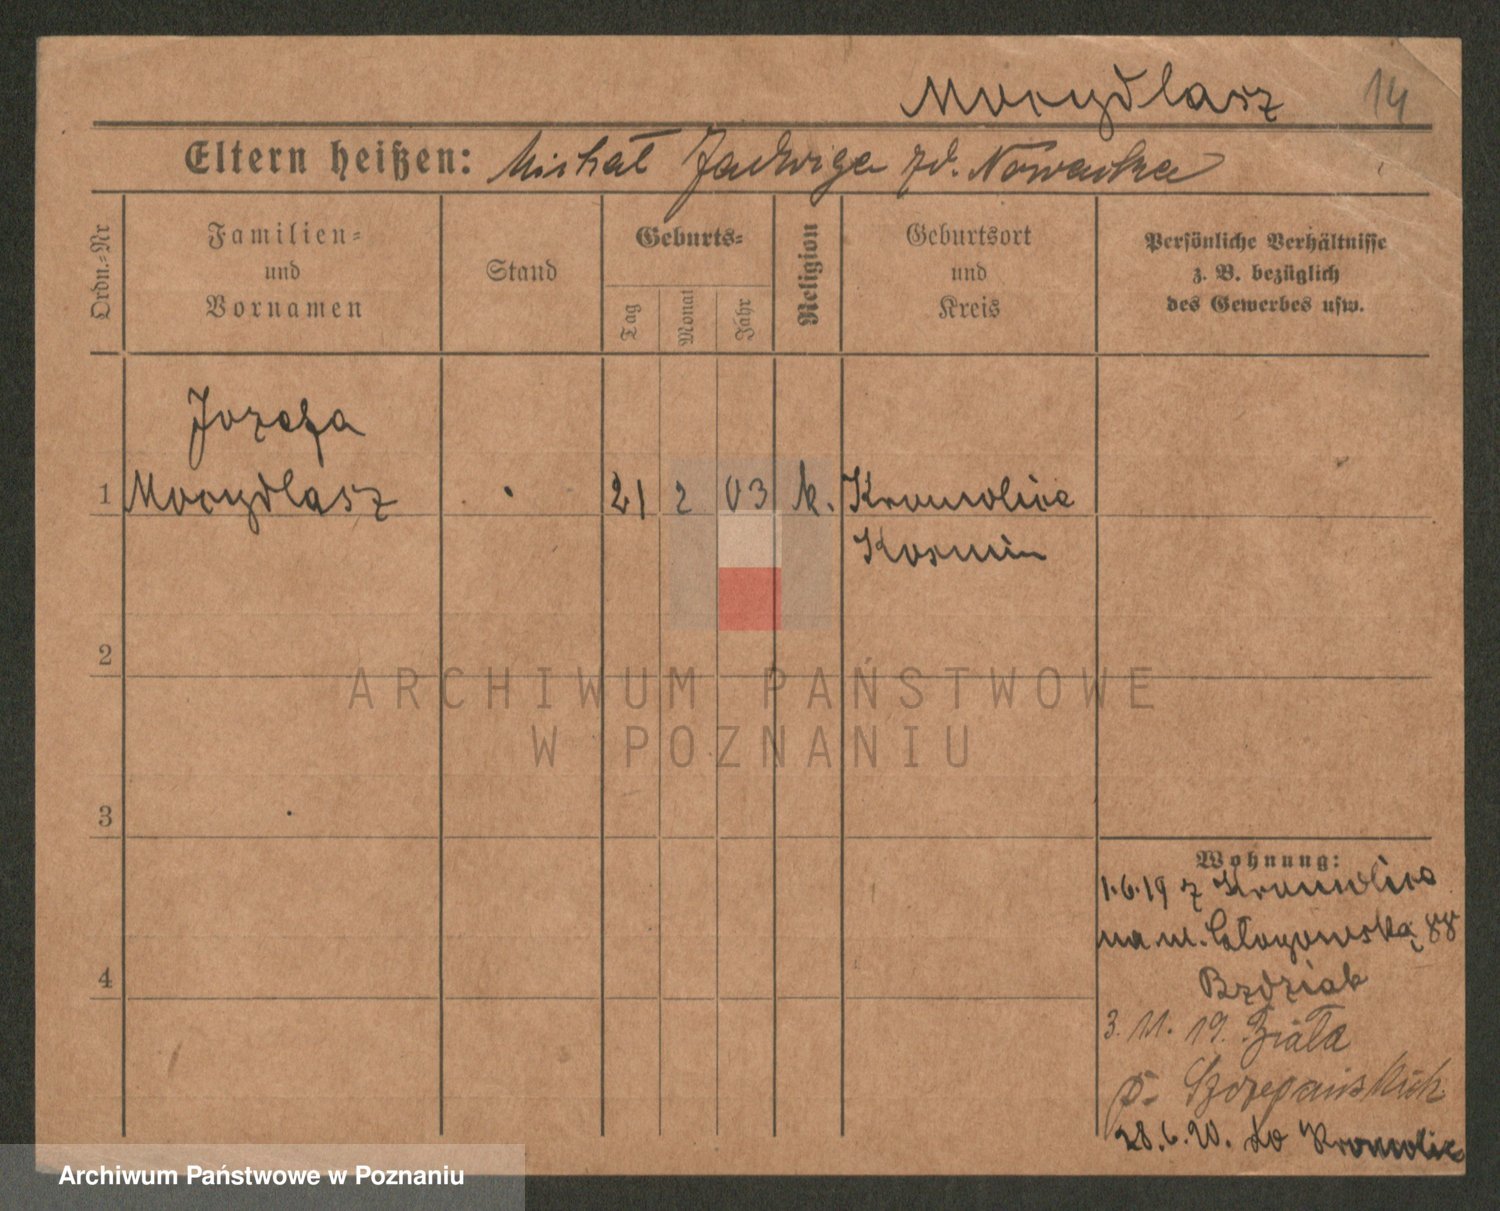 Mocydlarz
14
Eltern heißen: Michał Jadwiga zd. Nowacka
Ordn.-Nr
Familien- und Vornamen
Stand
Geburts-
Tag
Monat
Jahr
Religion
Geburtsort und Kreis
Persönliche Verhältnisse
z. B. bezüglich
des Gewerbes usw.
Jozefa
1 Mocydlarz 21 2 03 k. Kromolice
Kosmin
2
3
4
Wohnung:
1.6.19 z Kromolice
na ul. Głogowską 88
Bździak
3. 11. 19. Biała
p. Szczepańskich
28.6.20. do Kromolic
ARCHIWUM PAŃSTWOWE
W POZNANIU
Archiwum Państwowe w Poznaniu